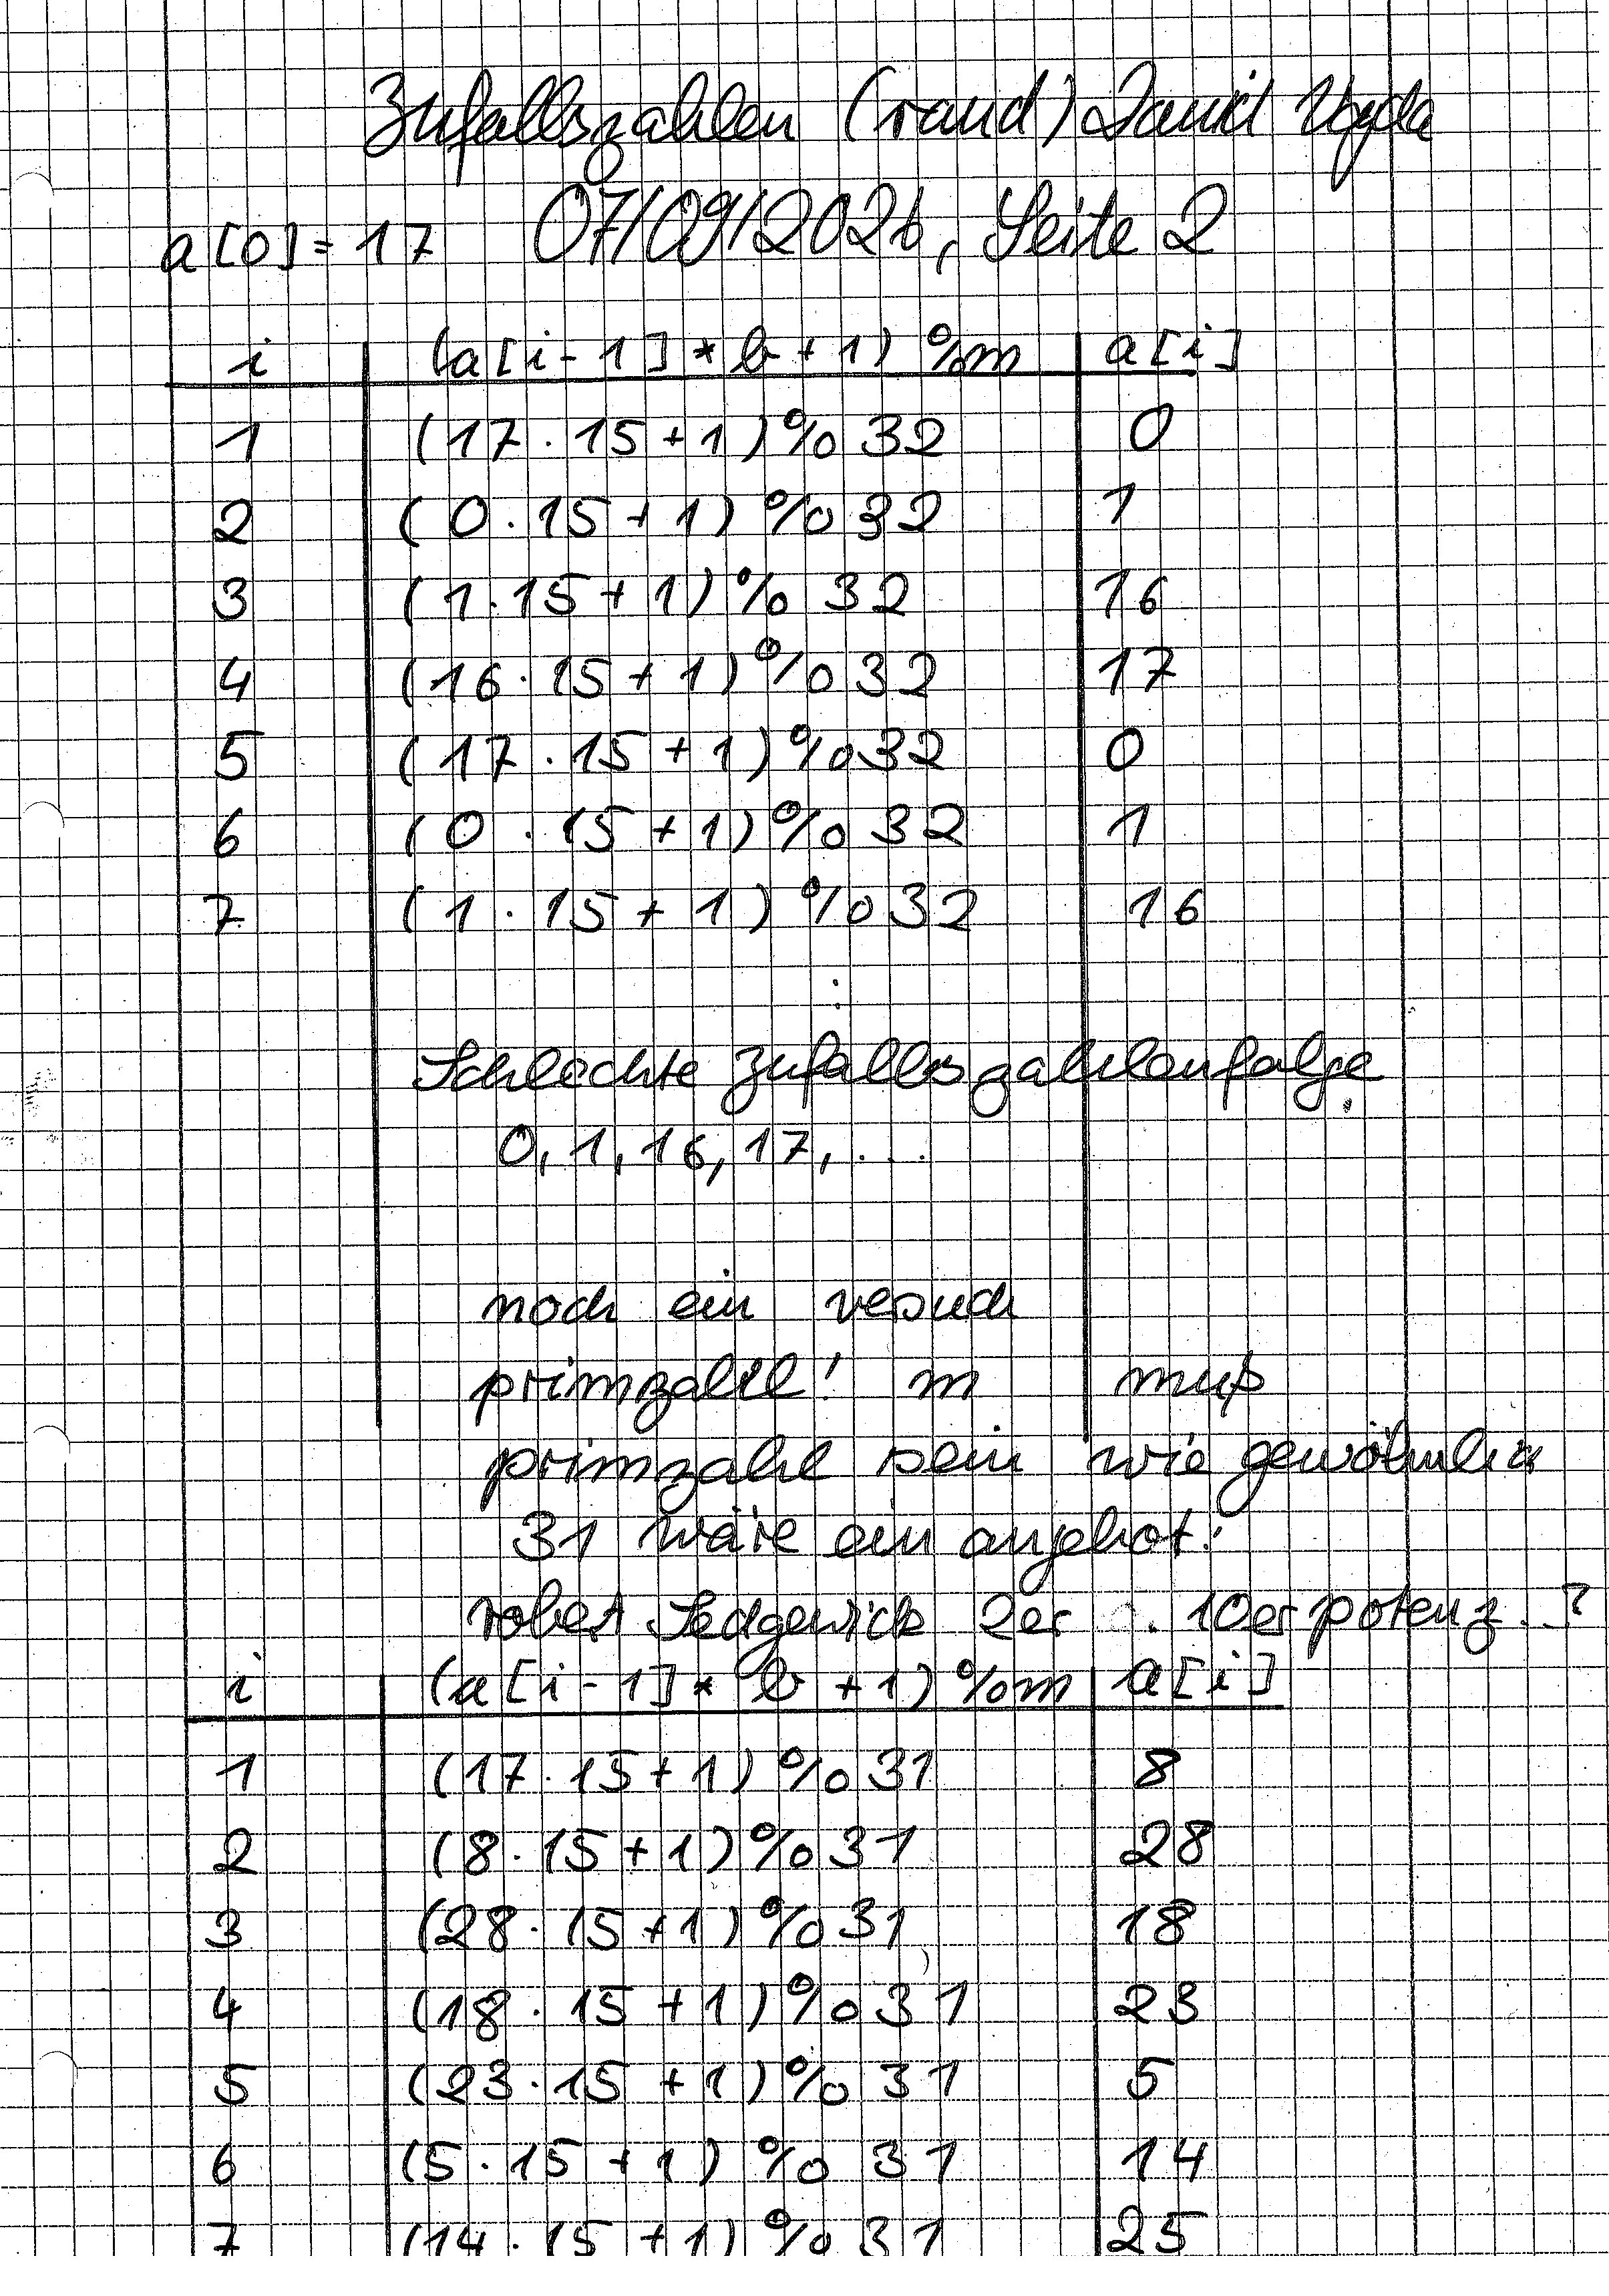 Zufallszahlen (rand) David Vajda
07/09/2026, Seite 2
a[0] = 17
i (a[i-1] * b + 1) %m a[i]
1 (17 · 15 + 1) % 32 0
2 (0 · 15 + 1) % 32 1
3 (1 · 15 + 1) % 32 16
4 (16 · 15 + 1) % 32 17
5 (17 · 15 + 1) % 32 0
6 (0 · 15 + 1) % 32 1
7 (1 · 15 + 1) % 32 16
:
Schlechte Zufallszahlenfolge
0, 1, 16, 17, ...
noch ein versuch
primzahl! m muß
primzahl sein wie gewöhnlich
31 wäre ein angebot!
robert Sedgewick 2er . 10er potenz..?
i (a[i-1] * b + 1) %m a[i]
1 (17 · 15 + 1) % 31 8
2 (8 · 15 + 1) % 31 28
3 (28 · 15 + 1) % 31 18
4 (18 · 15 + 1) % 31 23
5 (23 · 15 + 1) % 31 5
6 (5 · 15 + 1) % 31 14
7 (14 · 15 + 1) % 31 25